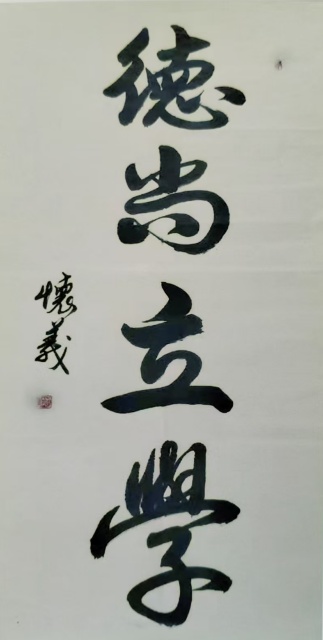 德尚立學
懷義